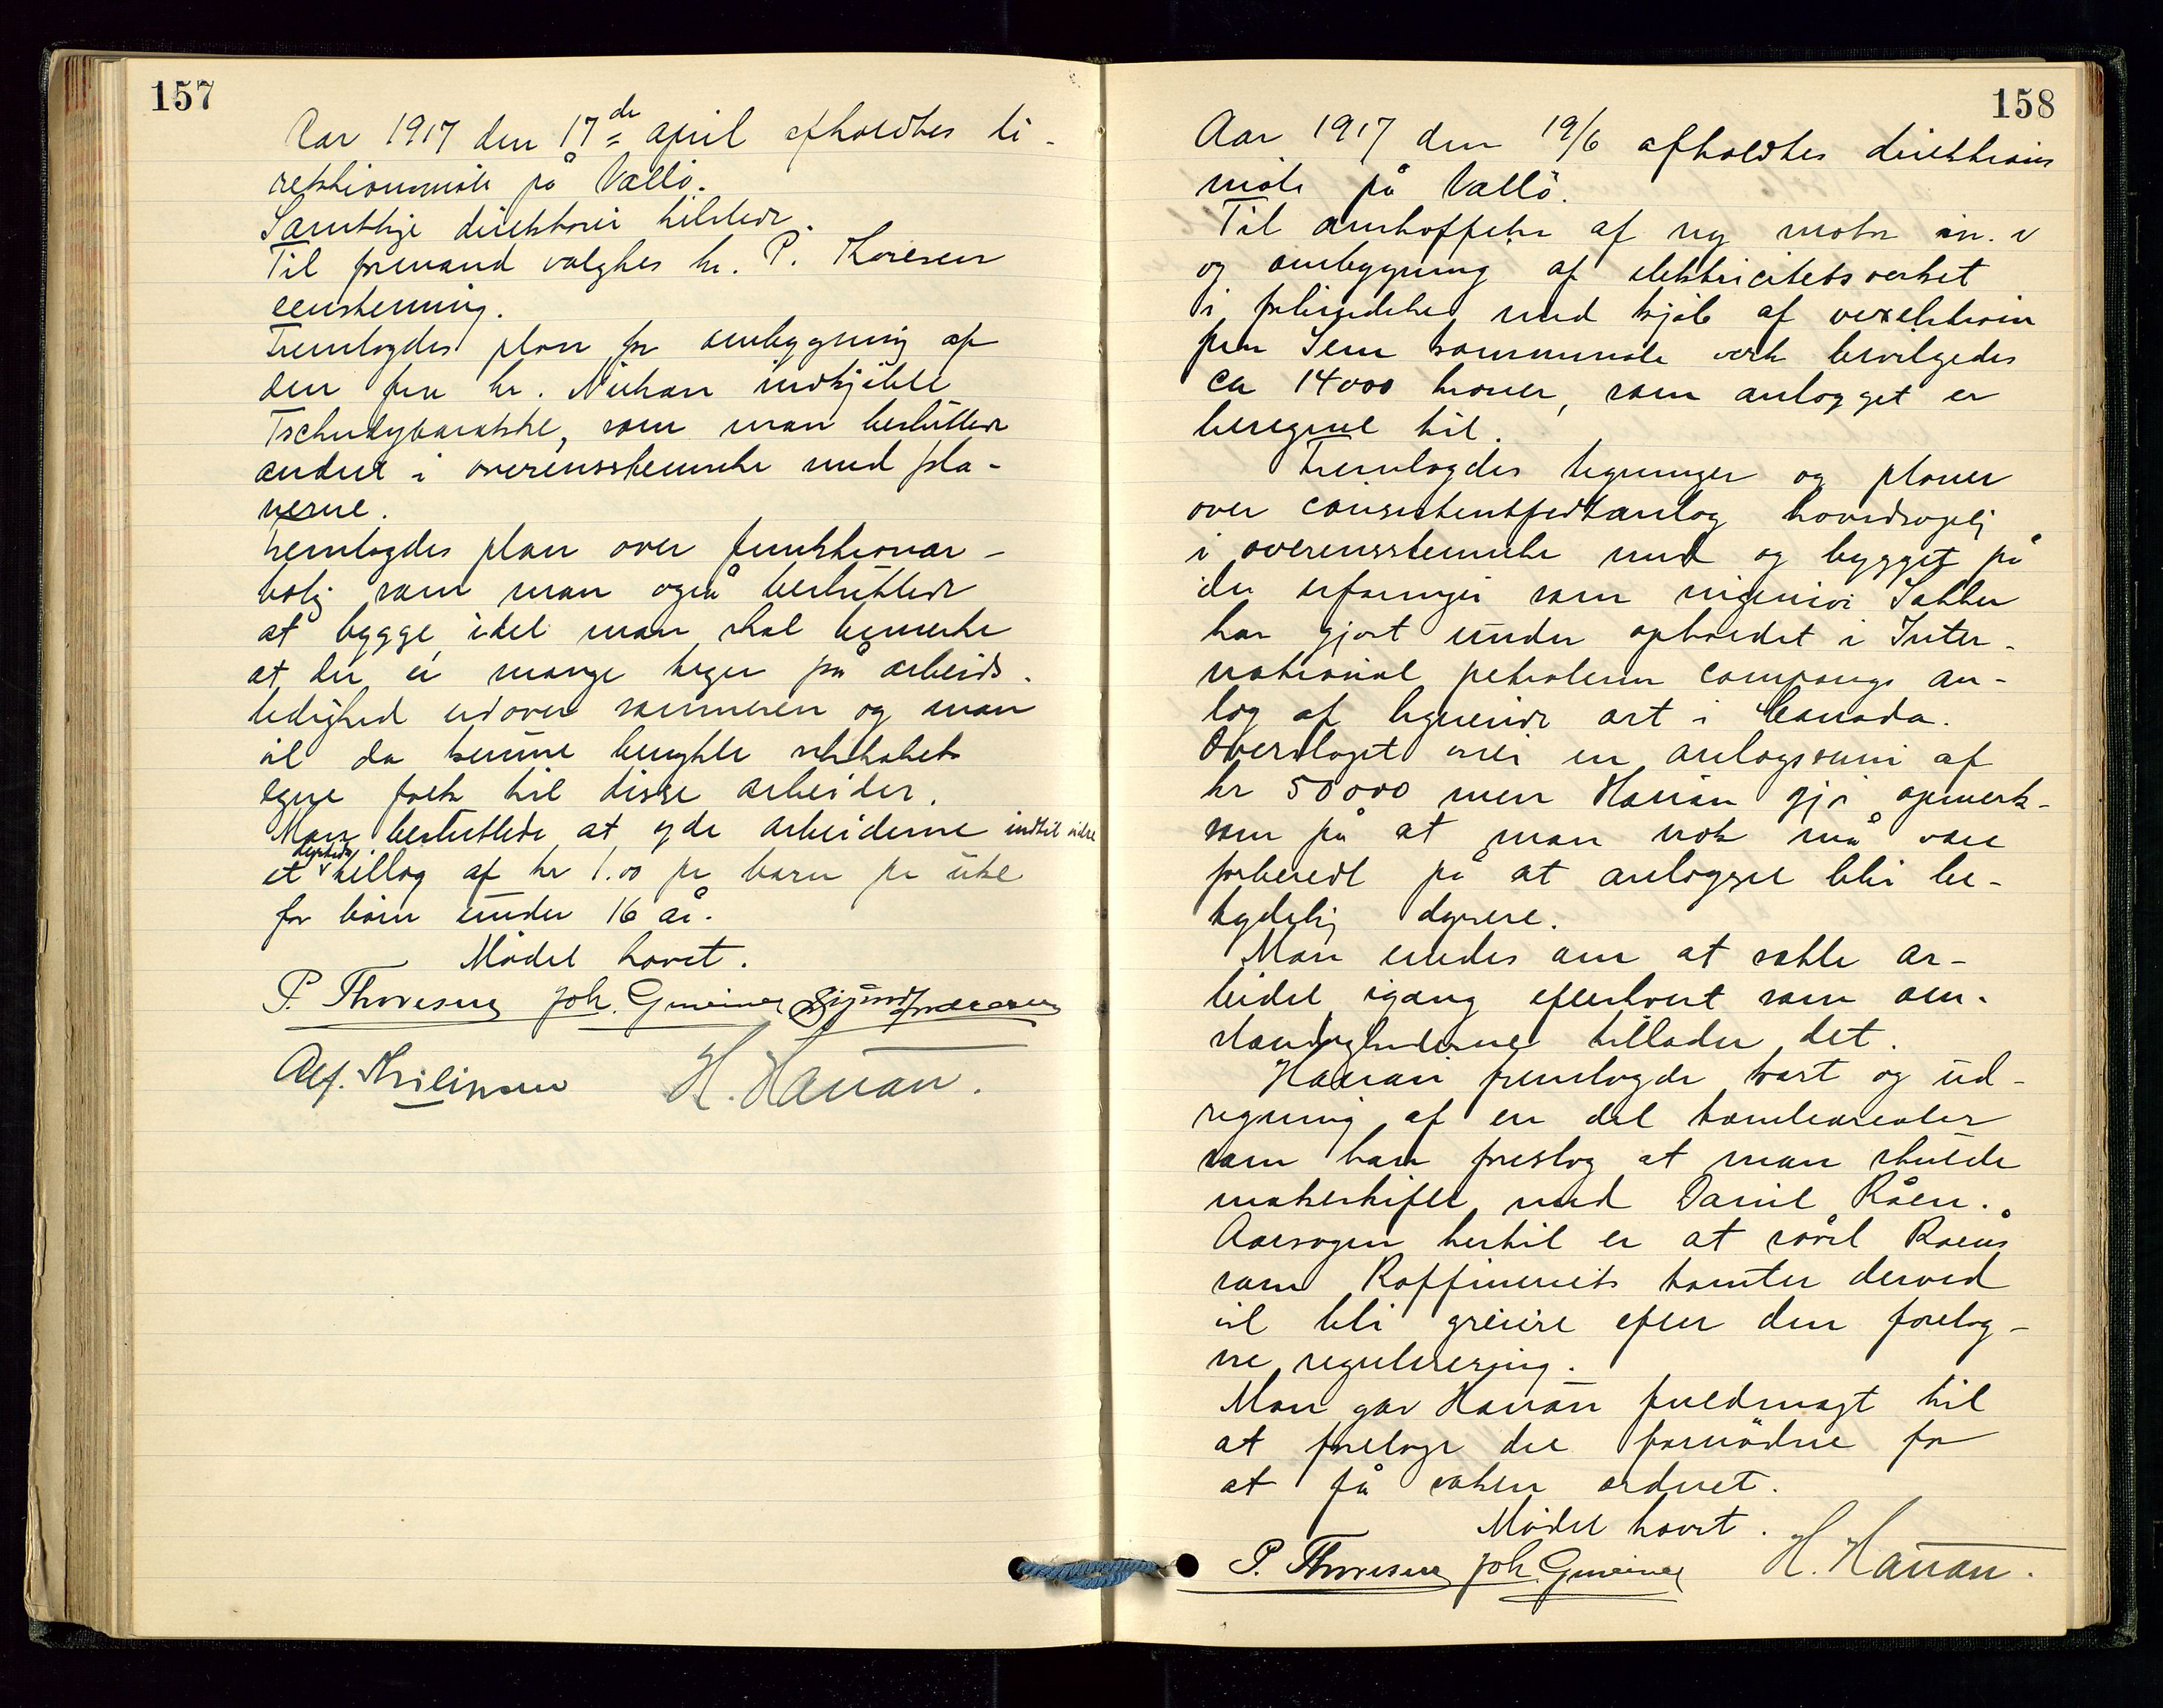 157
Aar 1917 den 17de april afholdtes di-
rektionsmöte på Vallö.
Samtlige direktörer tilstede.
Til formand valgtes hr. P. Thoresen
eenstemmig.
Fremlagdes plan for ombygning af
den fra hr. indkjöbte
som man besluttede
ændret i overensstemmelse med pla-
nerne.
Fremlagdes plan over funktionær-
bolig som man også besluttede
at bygge idet man skal bemerke
at der er mange tegn på arbeids-
ledighed udover sommeren og man
vil da kunne benytte selskabets
egne folk til disse arbeider.
Man besluttede at yde arbeiderne indtil videre
et dyrtids tillæg af kr 1.00 pr barn pr uke
for börn under 16 år.
Mödet hævet.
P. Thoresen Joh. Gmeiner Sigurd Andersen
Alf. H. Hauan.
158
Aar 1917 den 19/6 afholdtes direktions
möte på Vallö.
Til anskaffelse af ny motor m. v
og ombygning af elektricitetsverket
i forbindelse med kjöb af vexelström
fra Sem kommunale verk bevilgedes
ca 14000 kroner, som anlægget er
beregnet til.
Fremlagdes tegninger og planer
over consistentfedtanlæg hovedsagelig
i overensstemmelse med og bygget på
de erfaringer som ingeniör
har gjort under opholdet i Inter-
national petroleum companys an-
læg af lignende art i Canada.
Overslaget viser en anlægssum af
kr 50000 men Hauan gjör opmerk-
som på at man nok må være
forberedt på at anlægget blir be-
tydelig dyrere.
Man enedes om at sætte ar-
beidet igang efterhvert som om-
stændighederne tillader det.
Hauan fremlagde kart og ud-
regning af en del tomtearealer
som han foreslog at man skulde
makeskifte med Daniel Råen.
Aarsagen hertil er at såvel Råens
som Raffineriets tomter derved
vil bli greiere efter den foretag-
ne regulering.
Man gav Hauan fuldmagt til
at foretage det fornödne for
at få saken ordnet.
Mödet hævet.
P. Thoresen Joh. Gmeiner H. Hauan.